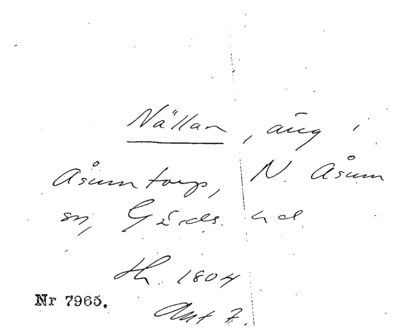 Nällan, äng i
Åsumtorp, N. Åsum
sn, Gärds hd
Hh. 1804
Akt 7.
Nr 7965.